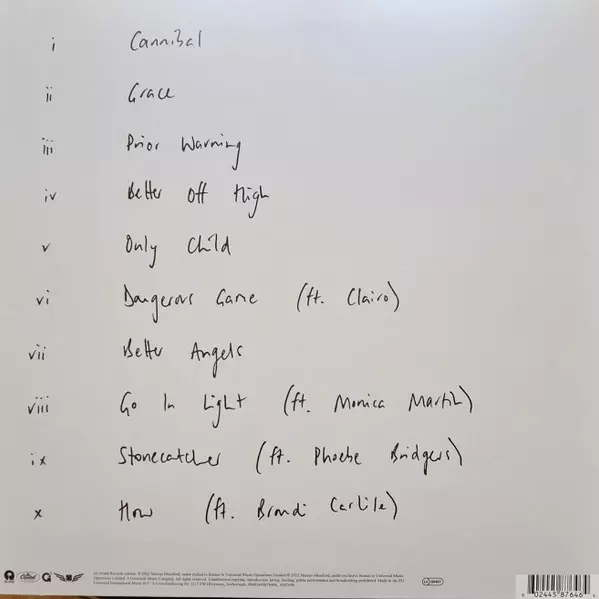 i Cannibal
ii Grace
iii Prior Warning
iv Better Off High
v Only Child
vi Dangerous Game (ft. Clairo)
vii Better Angels
viii Go In Light (ft. Monica Martin)
ix Stonecatcher (ft. Phoebe Bridgers)
x How (ft. Brandi Carlile)
Capitol
6 02445 87646